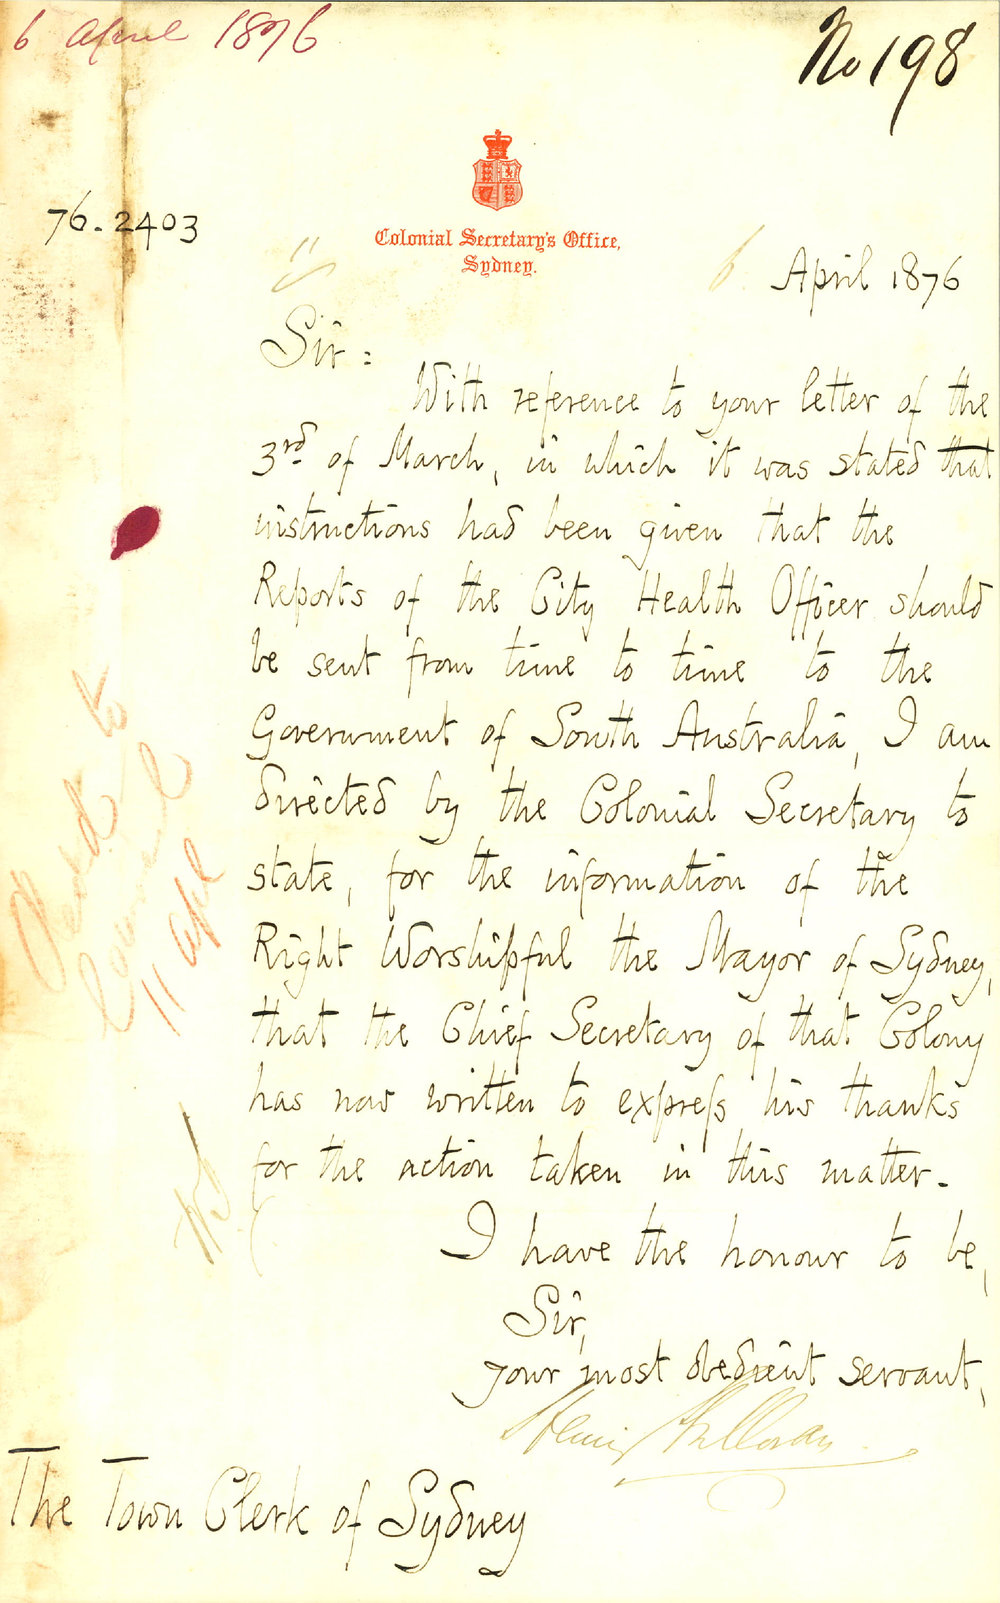 6 April 1876
No 198
76.2403
Colonial Secretary's Office,
Sydney.
6 April 1876
Sir:
With reference to your letter of the
3rd of March, in which it was stated that
instructions had been given that the
Reports of the City Health Officer should
be sent from time to time to the
Government of South Australia, I am
directed by the Colonial Secretary to
state, for the information of the
Right Worshipful the Mayor of Sydney,
that the Chief Secretary of that Colony
has now written to express his thanks
for the action taken in this matter.
I have the honour to be,
Sir,
your most obedient servant,
Henry Halloran
The Town Clerk of Sydney
Read to
Council
11 Apl